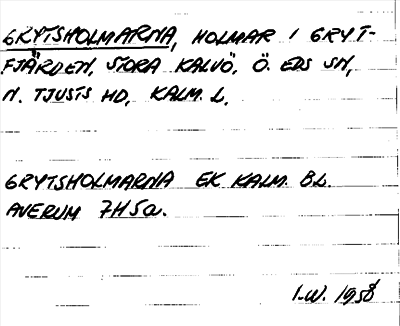 GRYTSHOLMARNA, HOLMAR I GRYT-
FJÄRDEN, STORA KALVÖ, Ö. EDS SN,
N. TJUSTS HD, KALM. L.
GRYTSHOLMARNA EK KALM. BL.
AVERUM 7H5a.
I.W. 1958